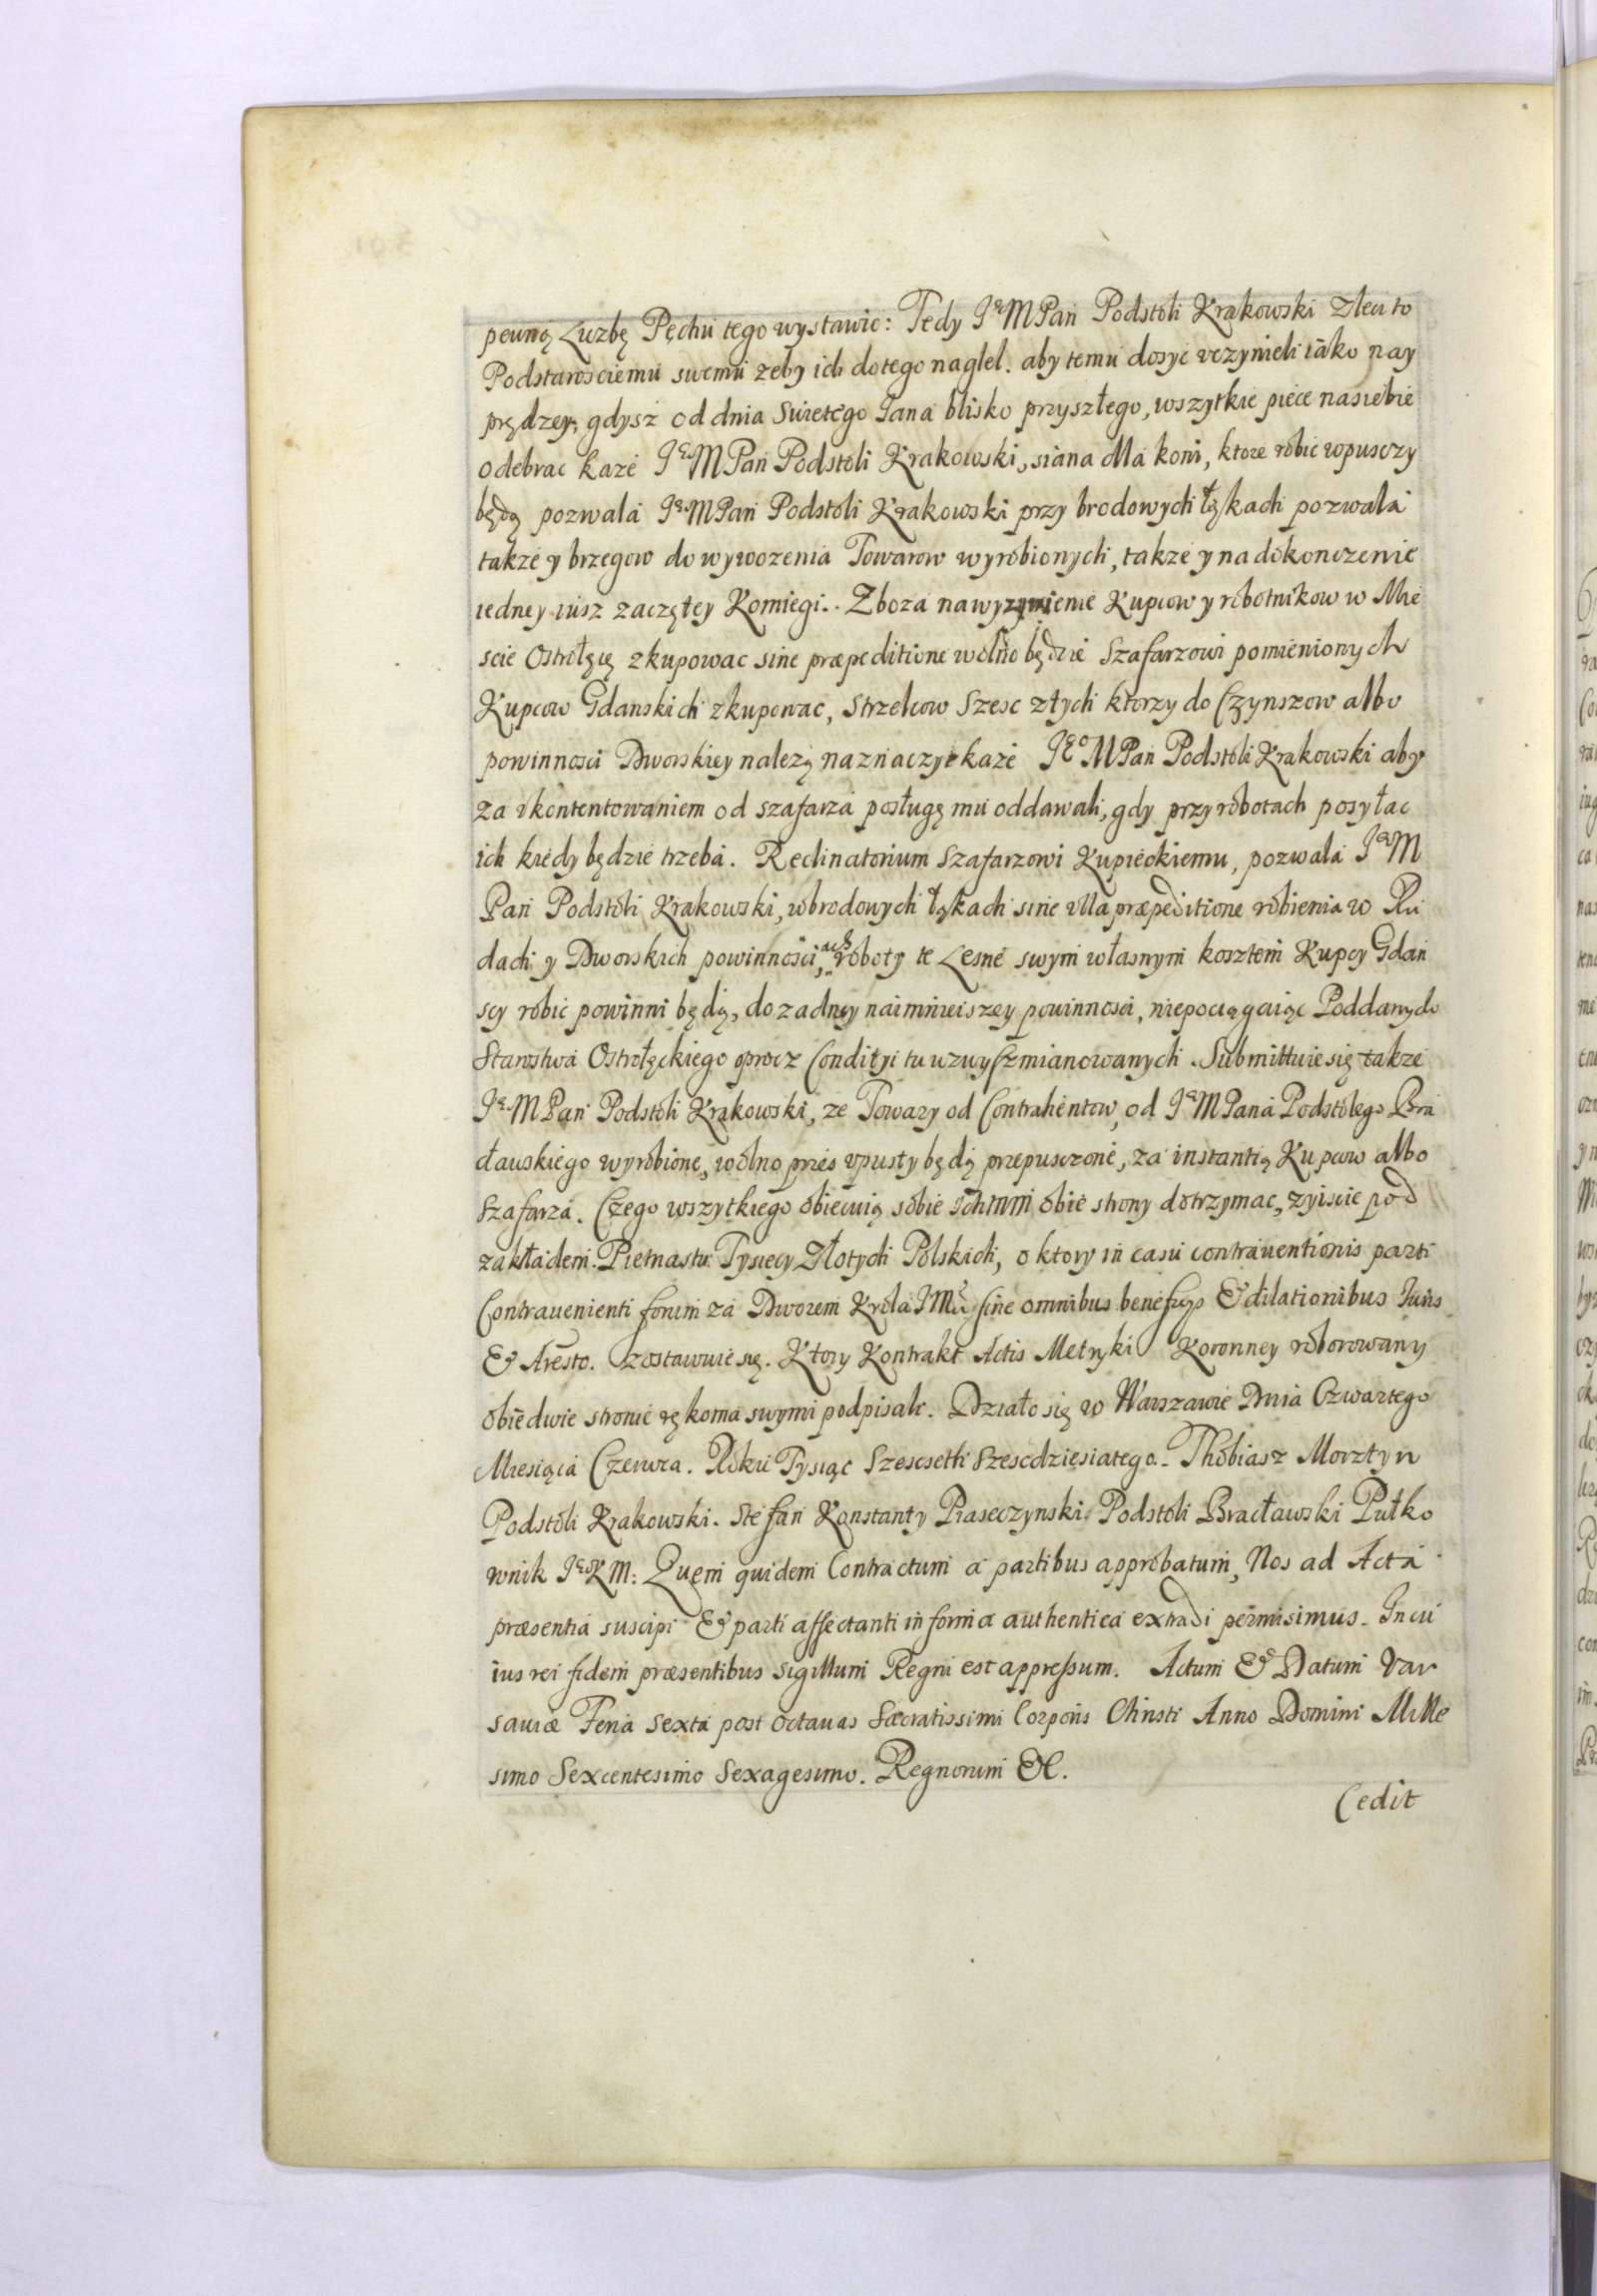 pewną Liczbę Pęchu tego wystawic: Tedy JeM Pan Podstoli Krakowski zleci to
Podstarosciemu swemu zeby ich do tego naglel. aby temu dosyc vczynieli iako nay
prędzey, gdysz od dnia Swietego Jana blisko przyszłego, wszytkie piece na siebie
odebrac kaze JeM Pan Podstoli Krakowski, siana dla koni, ktore robic w pusczy
będą pozwala JeM Pan Podstoli Krakowski przy brodowych łąkach pozwala
takze y brzegow do wywozenia Towarow wyrobionych, takze y na dokonczenie
iedney iusz zaczętey Komiegi. Zboza na wyzywienie Kupcow y robotnikow w Mie
scie Ostrołęię zkupowac sine præpeditione wolno będzie Szafarzowi pomienionych
Kupcow Gdanskich zkupowac, Strzelcow Szesc z tych ktorzy do Czynszow albo
powinnosci Dworskiey nalezą naznaczyc kaze JeoM Pan Podstoli Krakowski aby
za vkontentowaniem od szafarza posługę mu oddawali, gdy przy robotach posyłac
ich kiedy będzie trzeba. Reclinatorium Szafarzowi Kupieckiemu, pozwala JeM
Pan Podstoli Krakowski, w brodowych łąkach sine vlla præpeditione robienia w Ru
dach y Dworskich powinnosciach, roboty te Lesne swym własnym kosztem Kupcy Gdan
scy robic powinni będą, do zadney naimnieiszey powinnosci, niepociągaiąc Poddanych
Starostwa Ostrołęckiego oprocz Condityi tu wzwysz mianowanych. Submittuie się takze
JeM Pan Podstoli Krakowski, ze Towary od Contrahentow, od JeM Pana Podstolego Bra
cławskiego wyrobione, wolno przes vpusty będą przepusczone, za instantią Kupcow albo
Szafarza. Czego wszytkiego obiecuią sobie Ichmm obie strony dotrzymac, zyiscie pod
zakładem Pietnastu Tysiecy Złotych Polskich, o ktory in casu contrauentionis parti
Contrauenienti forum za Dworem Krola JMci sine omnibus beneficijs & dilationibus Iuris
& Aresto. zostawuie się. Ktory Kontrakt Actis Metryki Koronney roborowany
obiedwie stronie rękoma swymi podpisale. Działo się w Warszawie Dnia Czwartego
Miesiąca Czerwca. Roku Tysiąc Szescsetli Szescdziesiatego. Thobiasz Morztyn
Podstoli Krakowski. Stefan Konstanty Piaseczynski Podstoli Bracławski Pułko
wnik JeKM: Quem quidem Contractum a partibus approbatum, Nos ad Acta
præsentia suscipi & parti affectanti in forma authentica extradi permisimus. In cu
ius rei fidem præsentibus sigillum Regni est appressum. Actum & Datum Var
sauiæ Feria Sexta post Octauas Sacratissimi Corporis Christi Anno Domini Mille
simo Sexcentesimo Sexagesimo. Regnorum &c.
Cedit